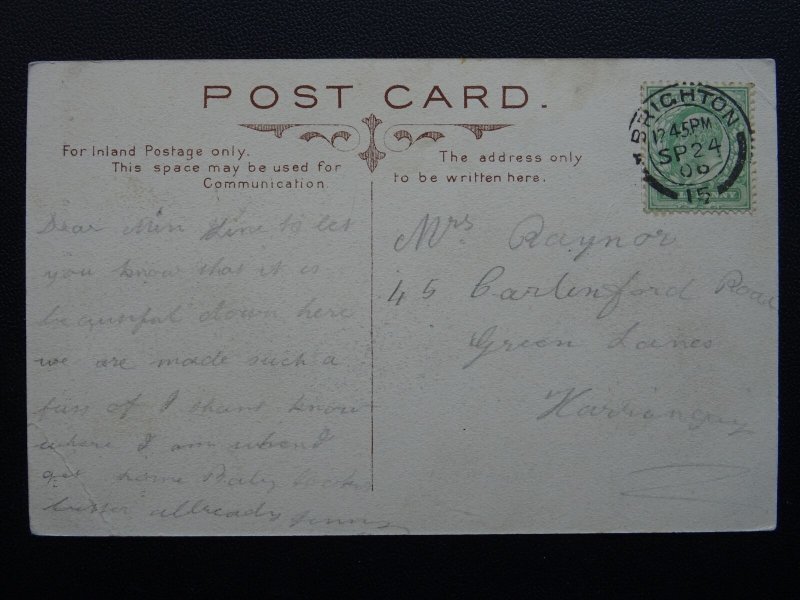 POST CARD.
For Inland Postage only.
This space may be used for
Communication.
The address only
to be written here.
BRIGHTON
12.45PM
SP 24
06
15
Dear Miss Hine to let
you know that it is
beautiful down here
we are made such a
fuss of I shant know
where I am when I
get home Baby looks
better allready
Mrs Raynor
45 Road
Green Lanes
Harringay